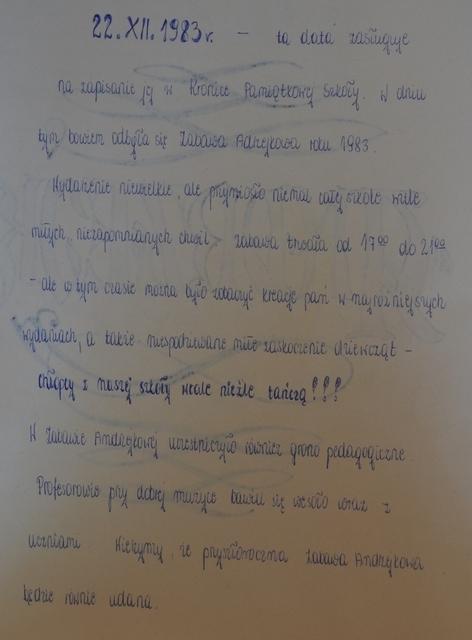 22.XII.1983r. - ta data zasługuje
na zapisanie jej w Kronice Pamiątkowej Szkoły. W dniu
tym bowiem odbyła się Zabawa Adrzejkowa roku 1983.
Wydarzenie niewielkie, ale przyniosło niemal całej szkole wiele
miłych, niezapomnianych chwil. Zabawa trwała od 17⁰⁰ do 21⁰⁰
- ale w tym czasie można było zobaczyć kreacje pań w najróżniejszych
wydaniach, a także niespodziewane miłe zaskoczenie dziewcząt -
chłopcy z naszej szkoły wcale nieźle tańczą!!!
W Zabawie Andrzejkowej uczestniczyło również grono pedagogiczne.
Profesorowie przy dobrej muzyce bawili się wesoło wraz z
uczniami. Wierzymy, że przyszłoroczna Zabawa Andrzejkowa
będzie równie udana.